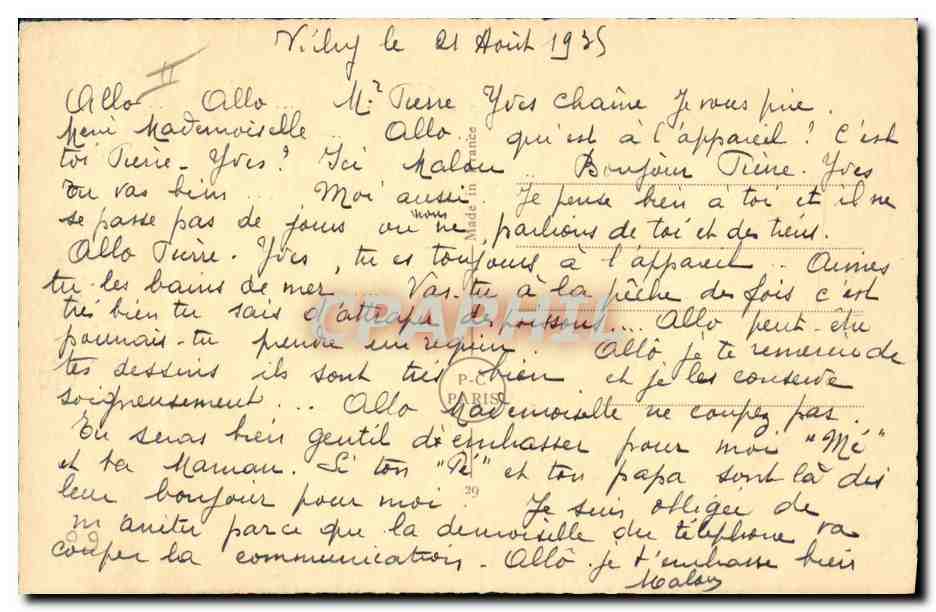 Vichy le 21 Août 1935
II
Allo .. Allo .. Mr Pierre Yves Chaîne je vous prie.
Merci Mademoiselle .. Allo. qui est à l'appareil? C'est
toi Pierre-Yves? Ici Malou .. Bonjour Pierre-Yves
Tu vas bien .. Moi aussi. Je pense bien à toi et il ne
se passe pas de jours où nous ne parlions de toi et des tiens.
Allo Pierre-Yves, tu es toujours à l'appareil .. Aimes
tu les bains de mer .. Vas-tu à la pêche des fois c'est
très bien tu sais d'attraper des poissons.... Allo peut-être
pourrais-tu prendre un requin. Allô je te remercie de
tes dessins ils sont très bien et je les conserve
soigneusement ... Allo Mademoiselle ne coupez pas.
Tu seras bien gentil d'embrasser pour moi "Mé"
et ta Maman. Si ton "Pé" et ton papa sont là dis
leur bonjour pour moi. Je suis obligée de
m'arrêter parce que la demoiselle du téléphone va
couper la communication. Allô je t'embrasse bien
Malou
Made in France
P-C
PARIS
29
CPAPHIL